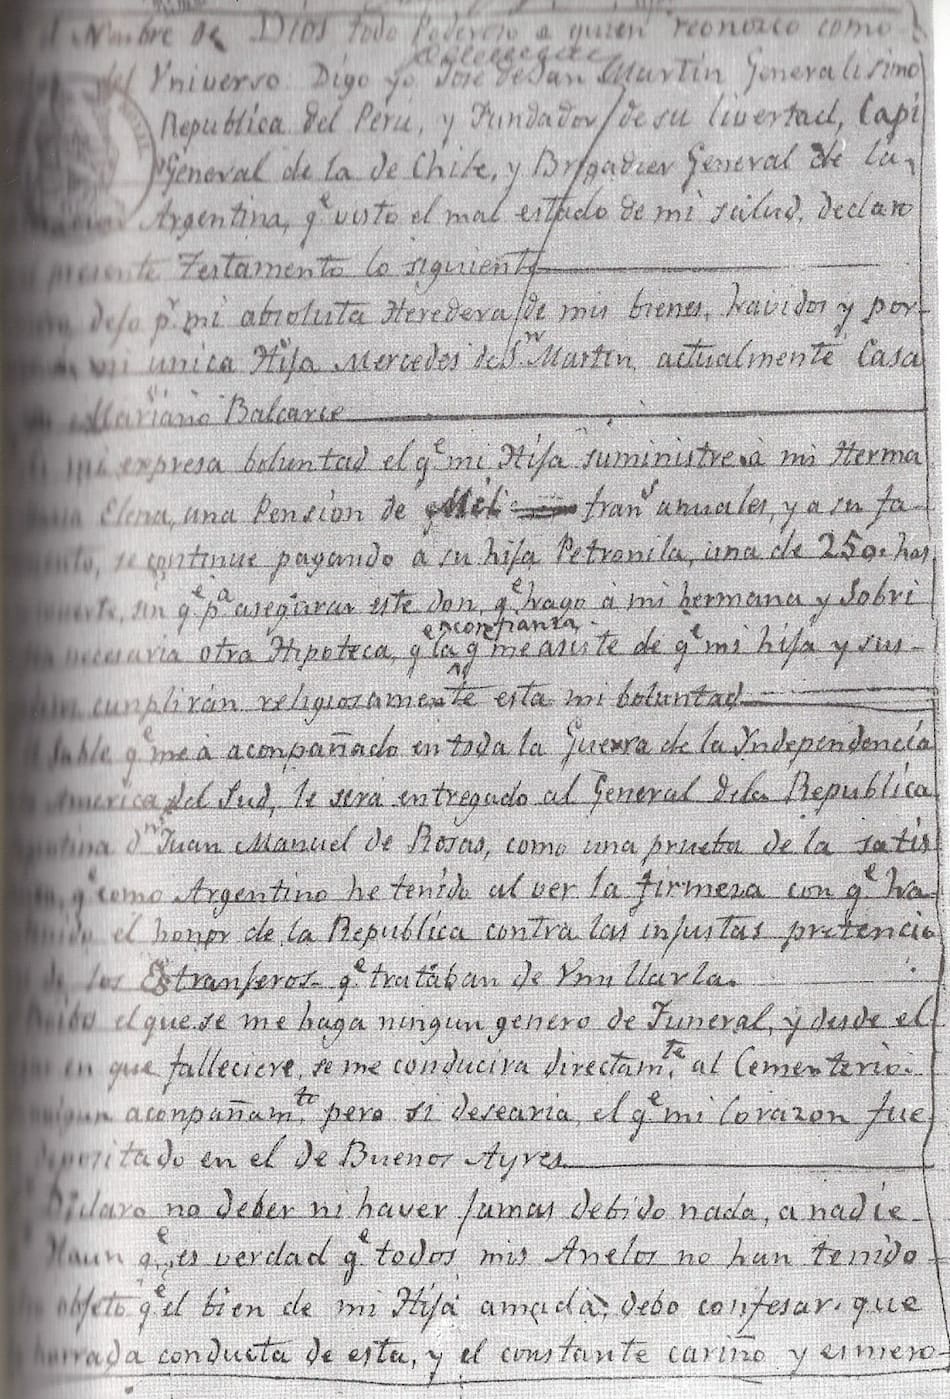 el Nombre de Dios todo Poderoso a quien reconozco como
del Yniverso: Digo yo José de San Martin, Generalisimo
Republica del Perú, y Fundador de su livertad, Capi
General de la de Chile, y Brigadier General de la
Argentina, qe visto el mal estado de mi salud, declaro
presente Testamento lo siguiente
dejo pr mi absoluta Heredera de mis bienes, havidos y por
mi unica Hija Mercedes de Sn Martin, actualmente Casa
Mariano Balcarce
mi expresa boluntad el qe mi Hija suministre à mi Herma
Elena, una Pension de Mil frans anuales, y a su fa-
ento, se continue pagando a su hija Petronila, una de 250, has
muerte, sin qe pa asegurar este don, qe hago à mi hermana y Sobri
necesaria otra Hipoteca, q la confianza qe me asiste de qe mi hija y sus
cunplirán religiosamente esta mi boluntad
Sable qe me à aconpañado en toda la Guerra de la Yndependencia
America del Sud, le será entregado al General de la Republica
gentina Dn Juan Manuel de Rosas, como una prueba de la satis
qe como Argentino he tenido al ver la firmeza con qe ha
el honor de la Republica contra las injustas pretencio
de los Estranjeros qe trataban de Umillarla.
hibo el que se me haga ningun genero de Funeral, y desde el
en que falleciere, se me conducira directamte al Cementerio
ningun aconpañamto, pero si desearia, el qe mi Corazon fue
depositado en el de Buenos Ayres
Declaro no deber ni haver jamas debido nada, a nadie
Haun qe es verdad qe todos mis Anelos no han tenido
objeto qe el bien de mi Hija amada, debo confesar, que
honrrada conducta de esta, y el constante cariño y esmero